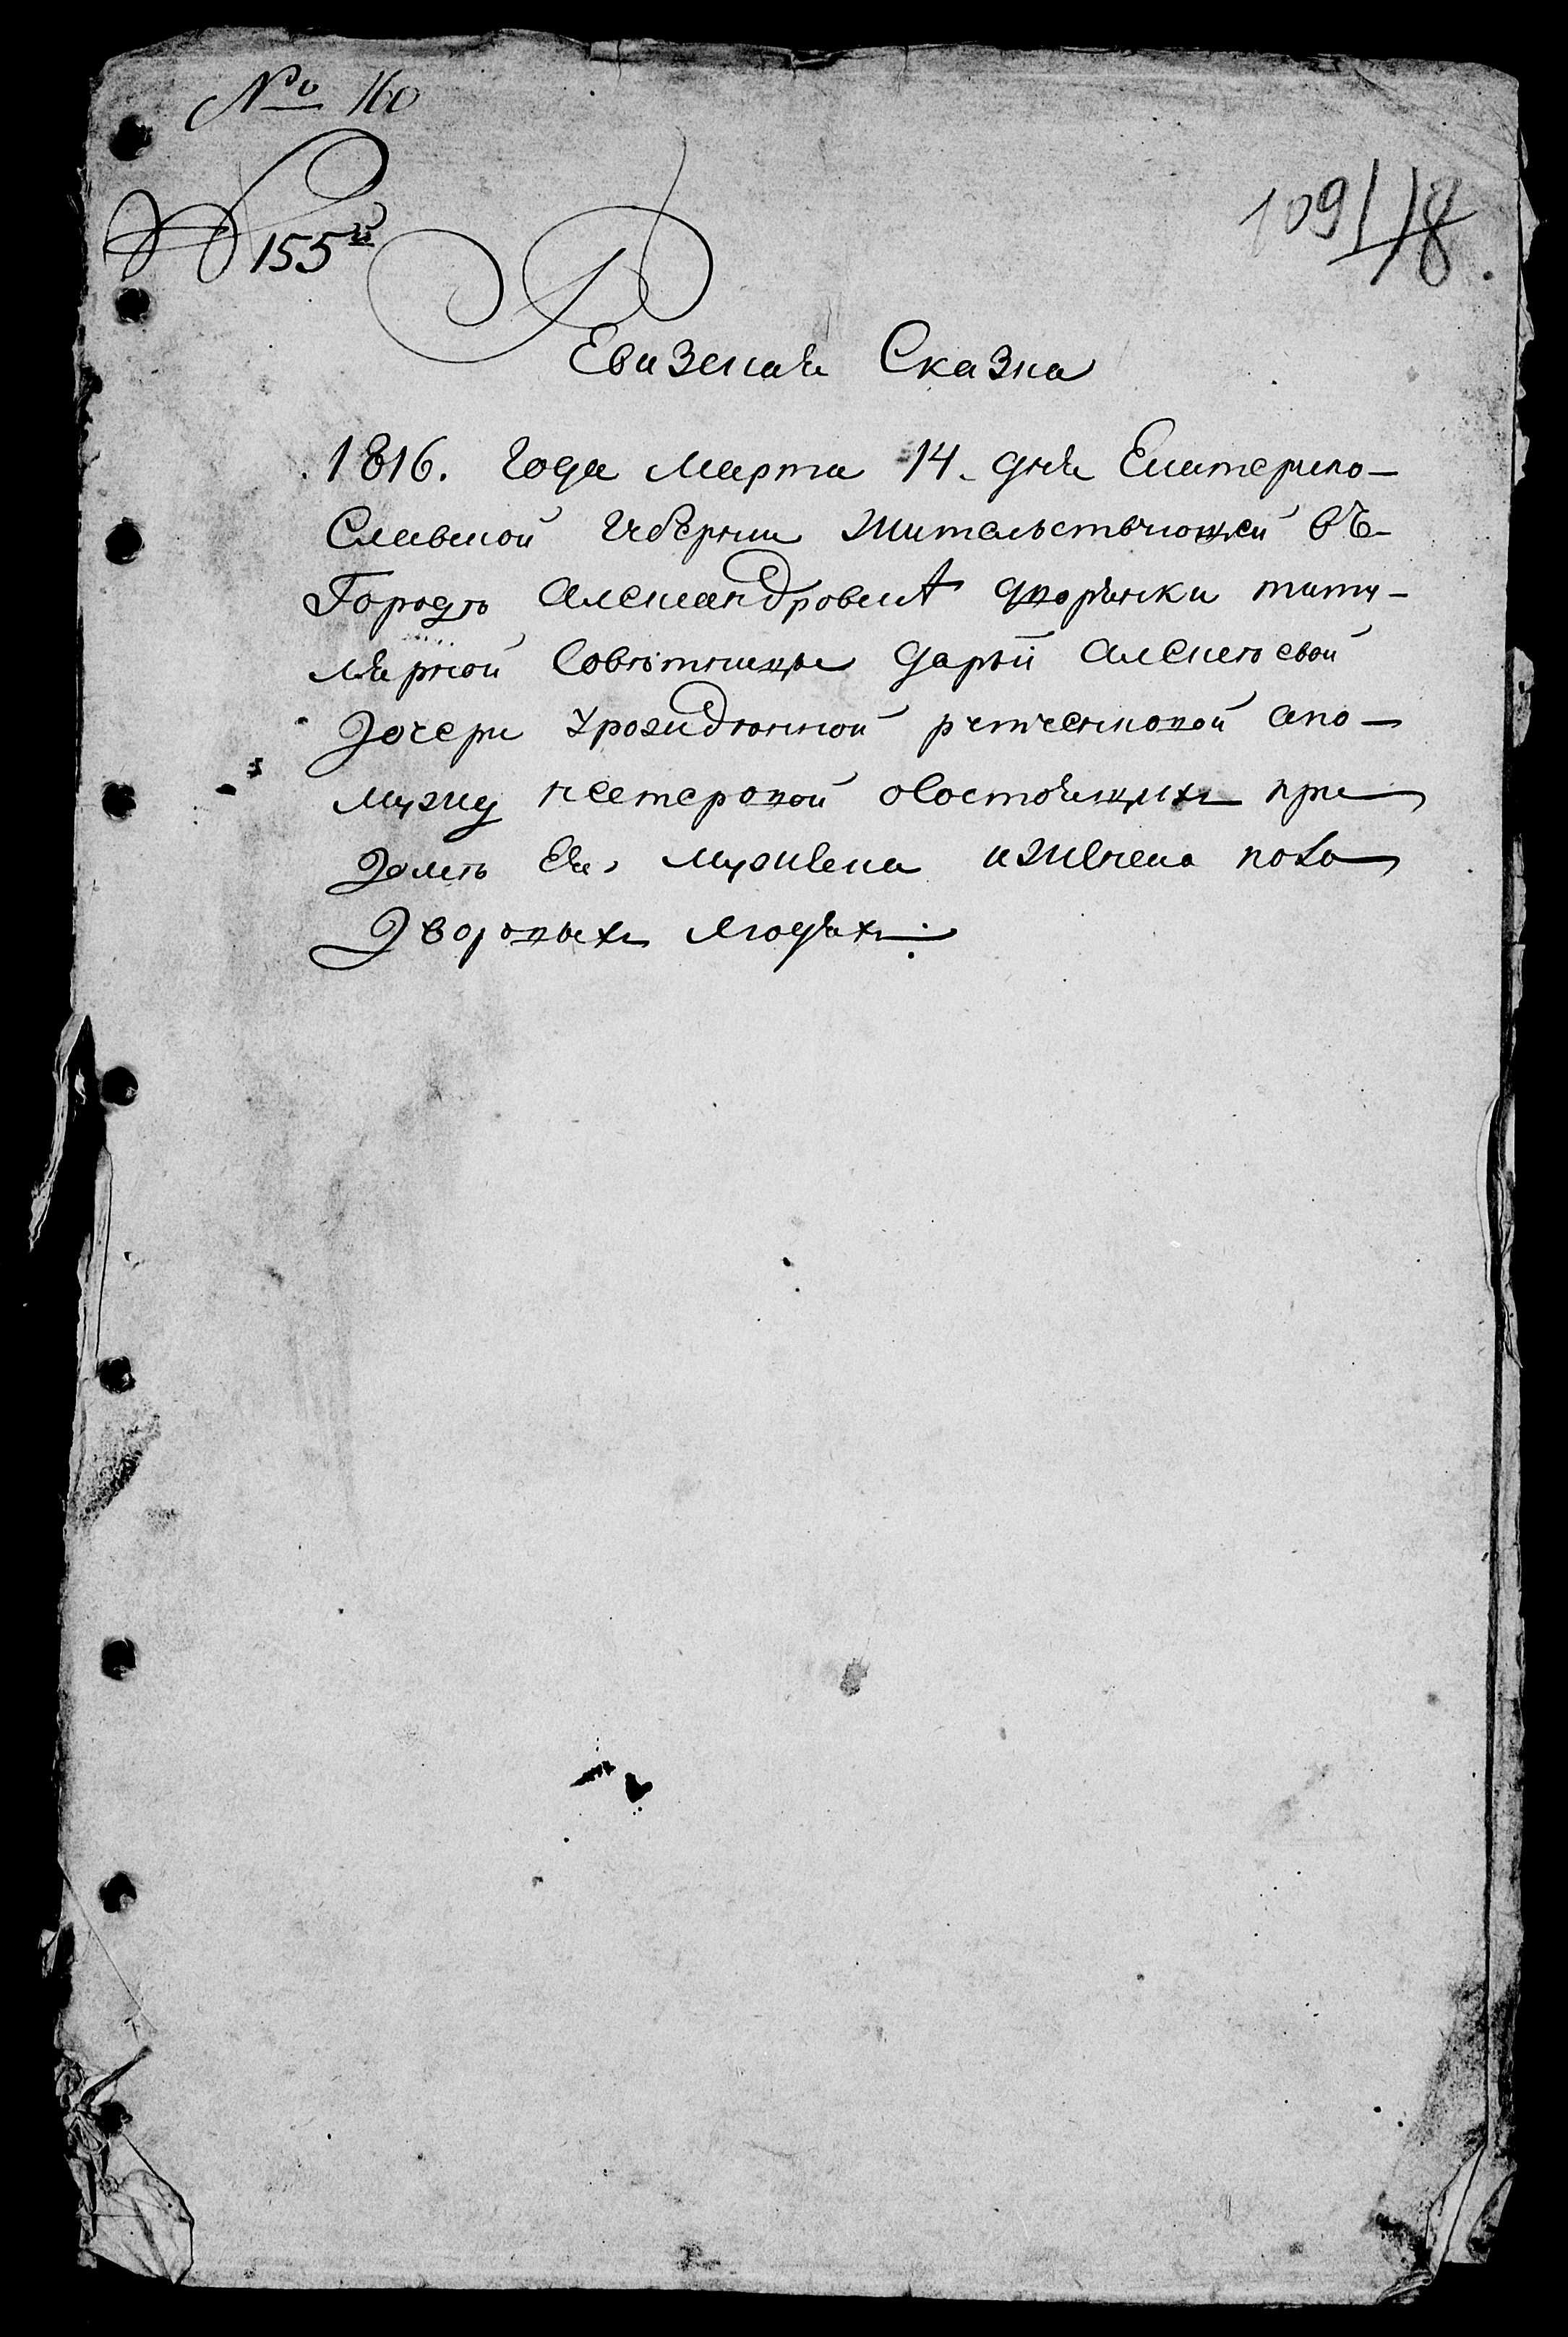 № 160
155й
109 118
Ревизская Сказка
1816. года марта 14. дня Екатерино-
Славской губернии жительствующей въ
Городѣ александровскѣ дворянки титу-
лярной Совѣтницы дарьи алексѣевой
дочери урожденной апо-
мужу нестеровой осостоящихъ при
домѣ Ея мужеска иженска пола
дворовыхъ людяхъ